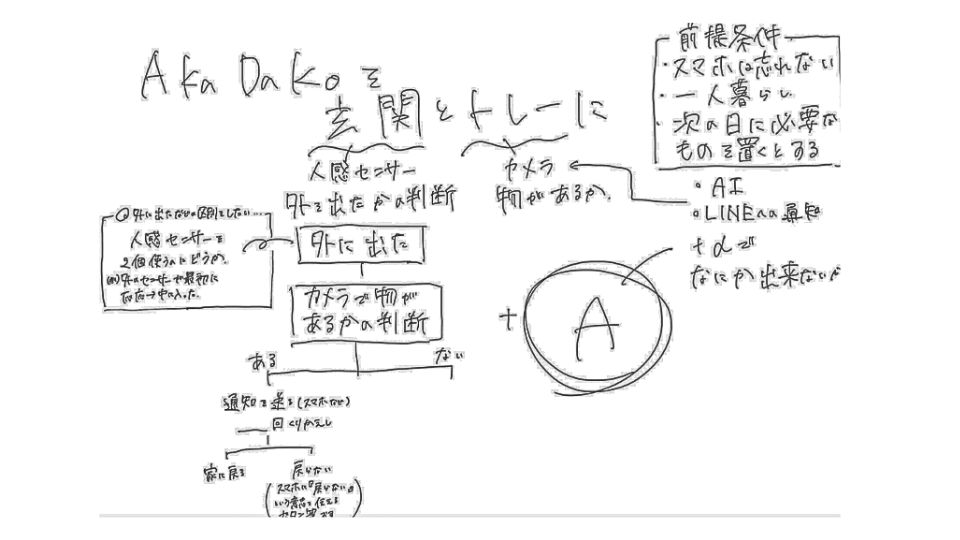 AkaDaKoを
玄関とトレーに
前提条件
・スマホは忘れない
・一人暮らし
・次の日に必要な
ものを置くとする
人感センサー
外を出たかの判断
カメラ
物があるか.
・AI
・LINEへの通知
+αで
なにか出来ないか
外に出た
人感センサーを
2個使うのはどうか.
カメラで物が
あるかの判断
+
A
ある
ない
通知を送る(スマホなど)
回くりかえし
家に戻る
戻らない
スマホに「戻らない」
という意志を伝える